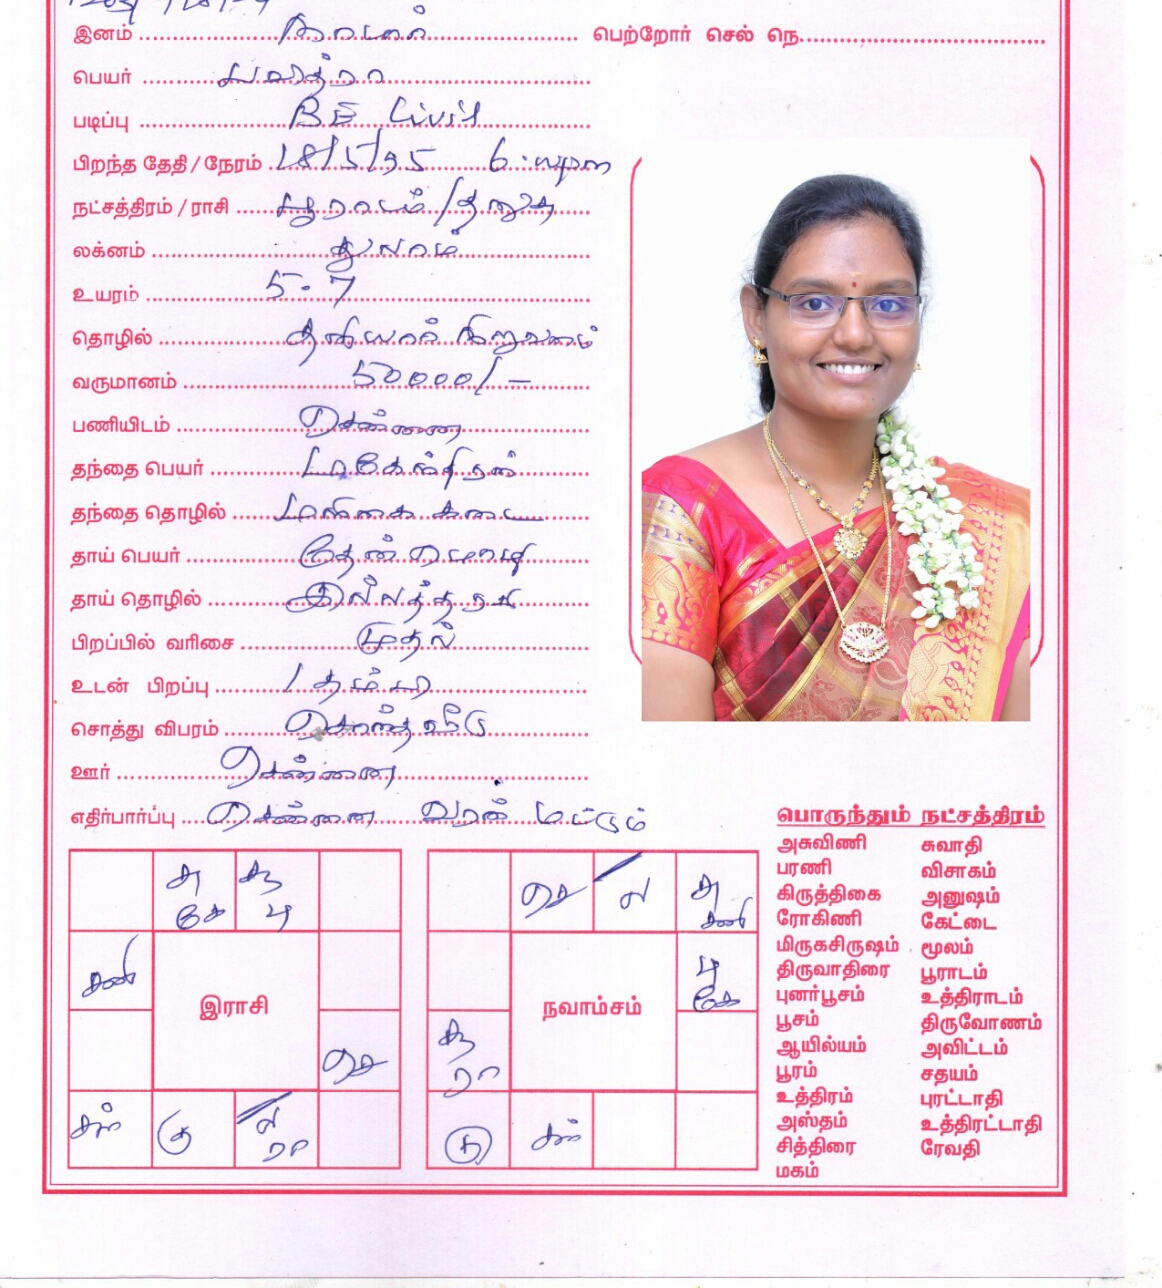 இனம் ........ நாடார் ........ பெற்றோர் செல் நெ.........
பெயர் ........ பவித்ரா
படிப்பு ........ BE
பிறந்த தேதி / நேரம் ........ 18/5/95 6:
நட்சத்திரம் / ராசி ........ பூராடம் / தனுசு
லக்னம் ........ துலாம்
உயரம் ........ 5.7
தொழில் ........ தனியார் நிறுவனம்
வருமானம் ........ 50000/-
பணியிடம் ........ சென்னை
தந்தை பெயர் ........
தந்தை தொழில் ........ மளிகை கடை
தாய் பெயர் ........ தேன்மொழி
தாய் தொழில் ........ இல்லத்தரசி
பிறப்பில் வரிசை ........ முதல்
உடன் பிறப்பு ........ 1 தம்பி
சொத்து விபரம் ........ சொந்த வீடு
ஊர் ........ சென்னை
எதிர்பார்ப்பு ..... சென்னை வரன் மட்டும்
சு சூ
கே பு
சனி
இராசி
செ
சந் கு ல
ரா
செ ல சு
சனி
பு
கே
நவாம்சம்
சூ
ரா
கு சந்
பொருந்தும் நட்சத்திரம்
அசுவிணி சுவாதி
பரணி விசாகம்
கிருத்திகை அனுஷம்
ரோகிணி கேட்டை
மிருகசிருஷம் மூலம்
திருவாதிரை பூராடம்
புனர்பூசம் உத்திராடம்
பூசம் திருவோணம்
ஆயில்யம் அவிட்டம்
பூரம் சதயம்
உத்திரம் புரட்டாதி
அஸ்தம் உத்திரட்டாதி
சித்திரை ரேவதி
மகம்